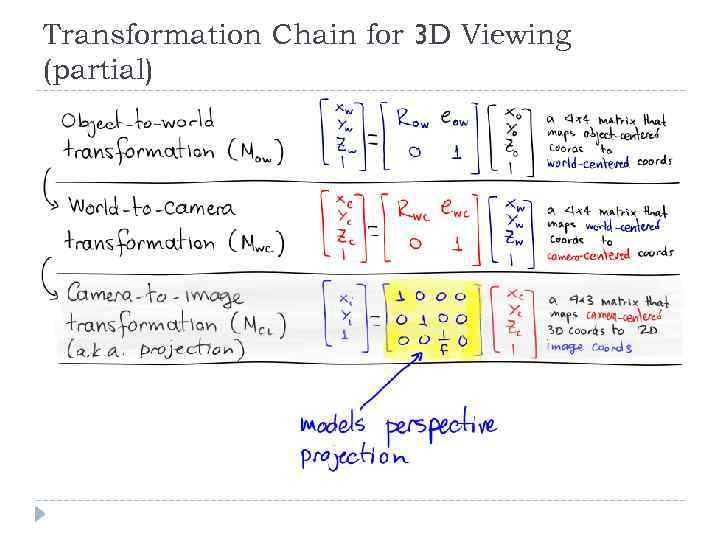 Transformation Chain for 3D Viewing
(partial)
Object-to-world
transformation (Mow)
[xw yw zw 1] = [Row eow 0 1] [xo yo zo 1]
a 4x4 matrix that
maps object-centered
coords to
world-centered coords
World-to-Camera
transformation (Mwc)
[xc yc zc 1] = [Rwc ewc 0 1] [xw yw zw 1]
a 4x4 matrix that
maps world-centered
coords to
camera-centered coords
Camera-to-image
transformation (Mci)
(a.k.a. projection)
[xi yi 1] = [1 0 0 0 0 1 0 0 0 0 1/f 0] [xc yc zc 1]
a 4x3 matrix that
maps camera-centered
3D coords to 2D
image coords
models perspective
projection